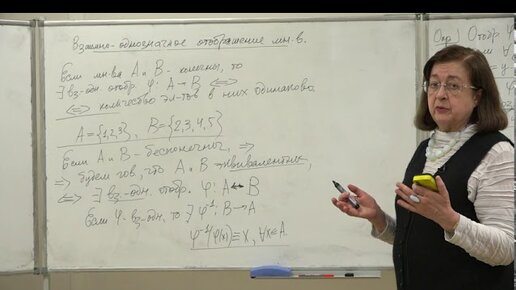 Взаимно-однозначное отображение мн-в.
Если мн-ва A и B - конечны, то
∃ вз-одн отобр. φ: A → B ⟺
⟺ количество эл-тов в них одинаково.
A = {1,2,3}, B = {2,3,4,5}
Если A и B - бесконечны, ⇒
⇒ будем гов, что A и B эквивалентны,
⟺ ∃ вз-одн. отобр. φ: A ↔ B
Если φ вз-одн, то ∃ φ⁻¹: B → A
φ⁻¹(φ(x)) ≡ x, ∀x∈A.
Опр